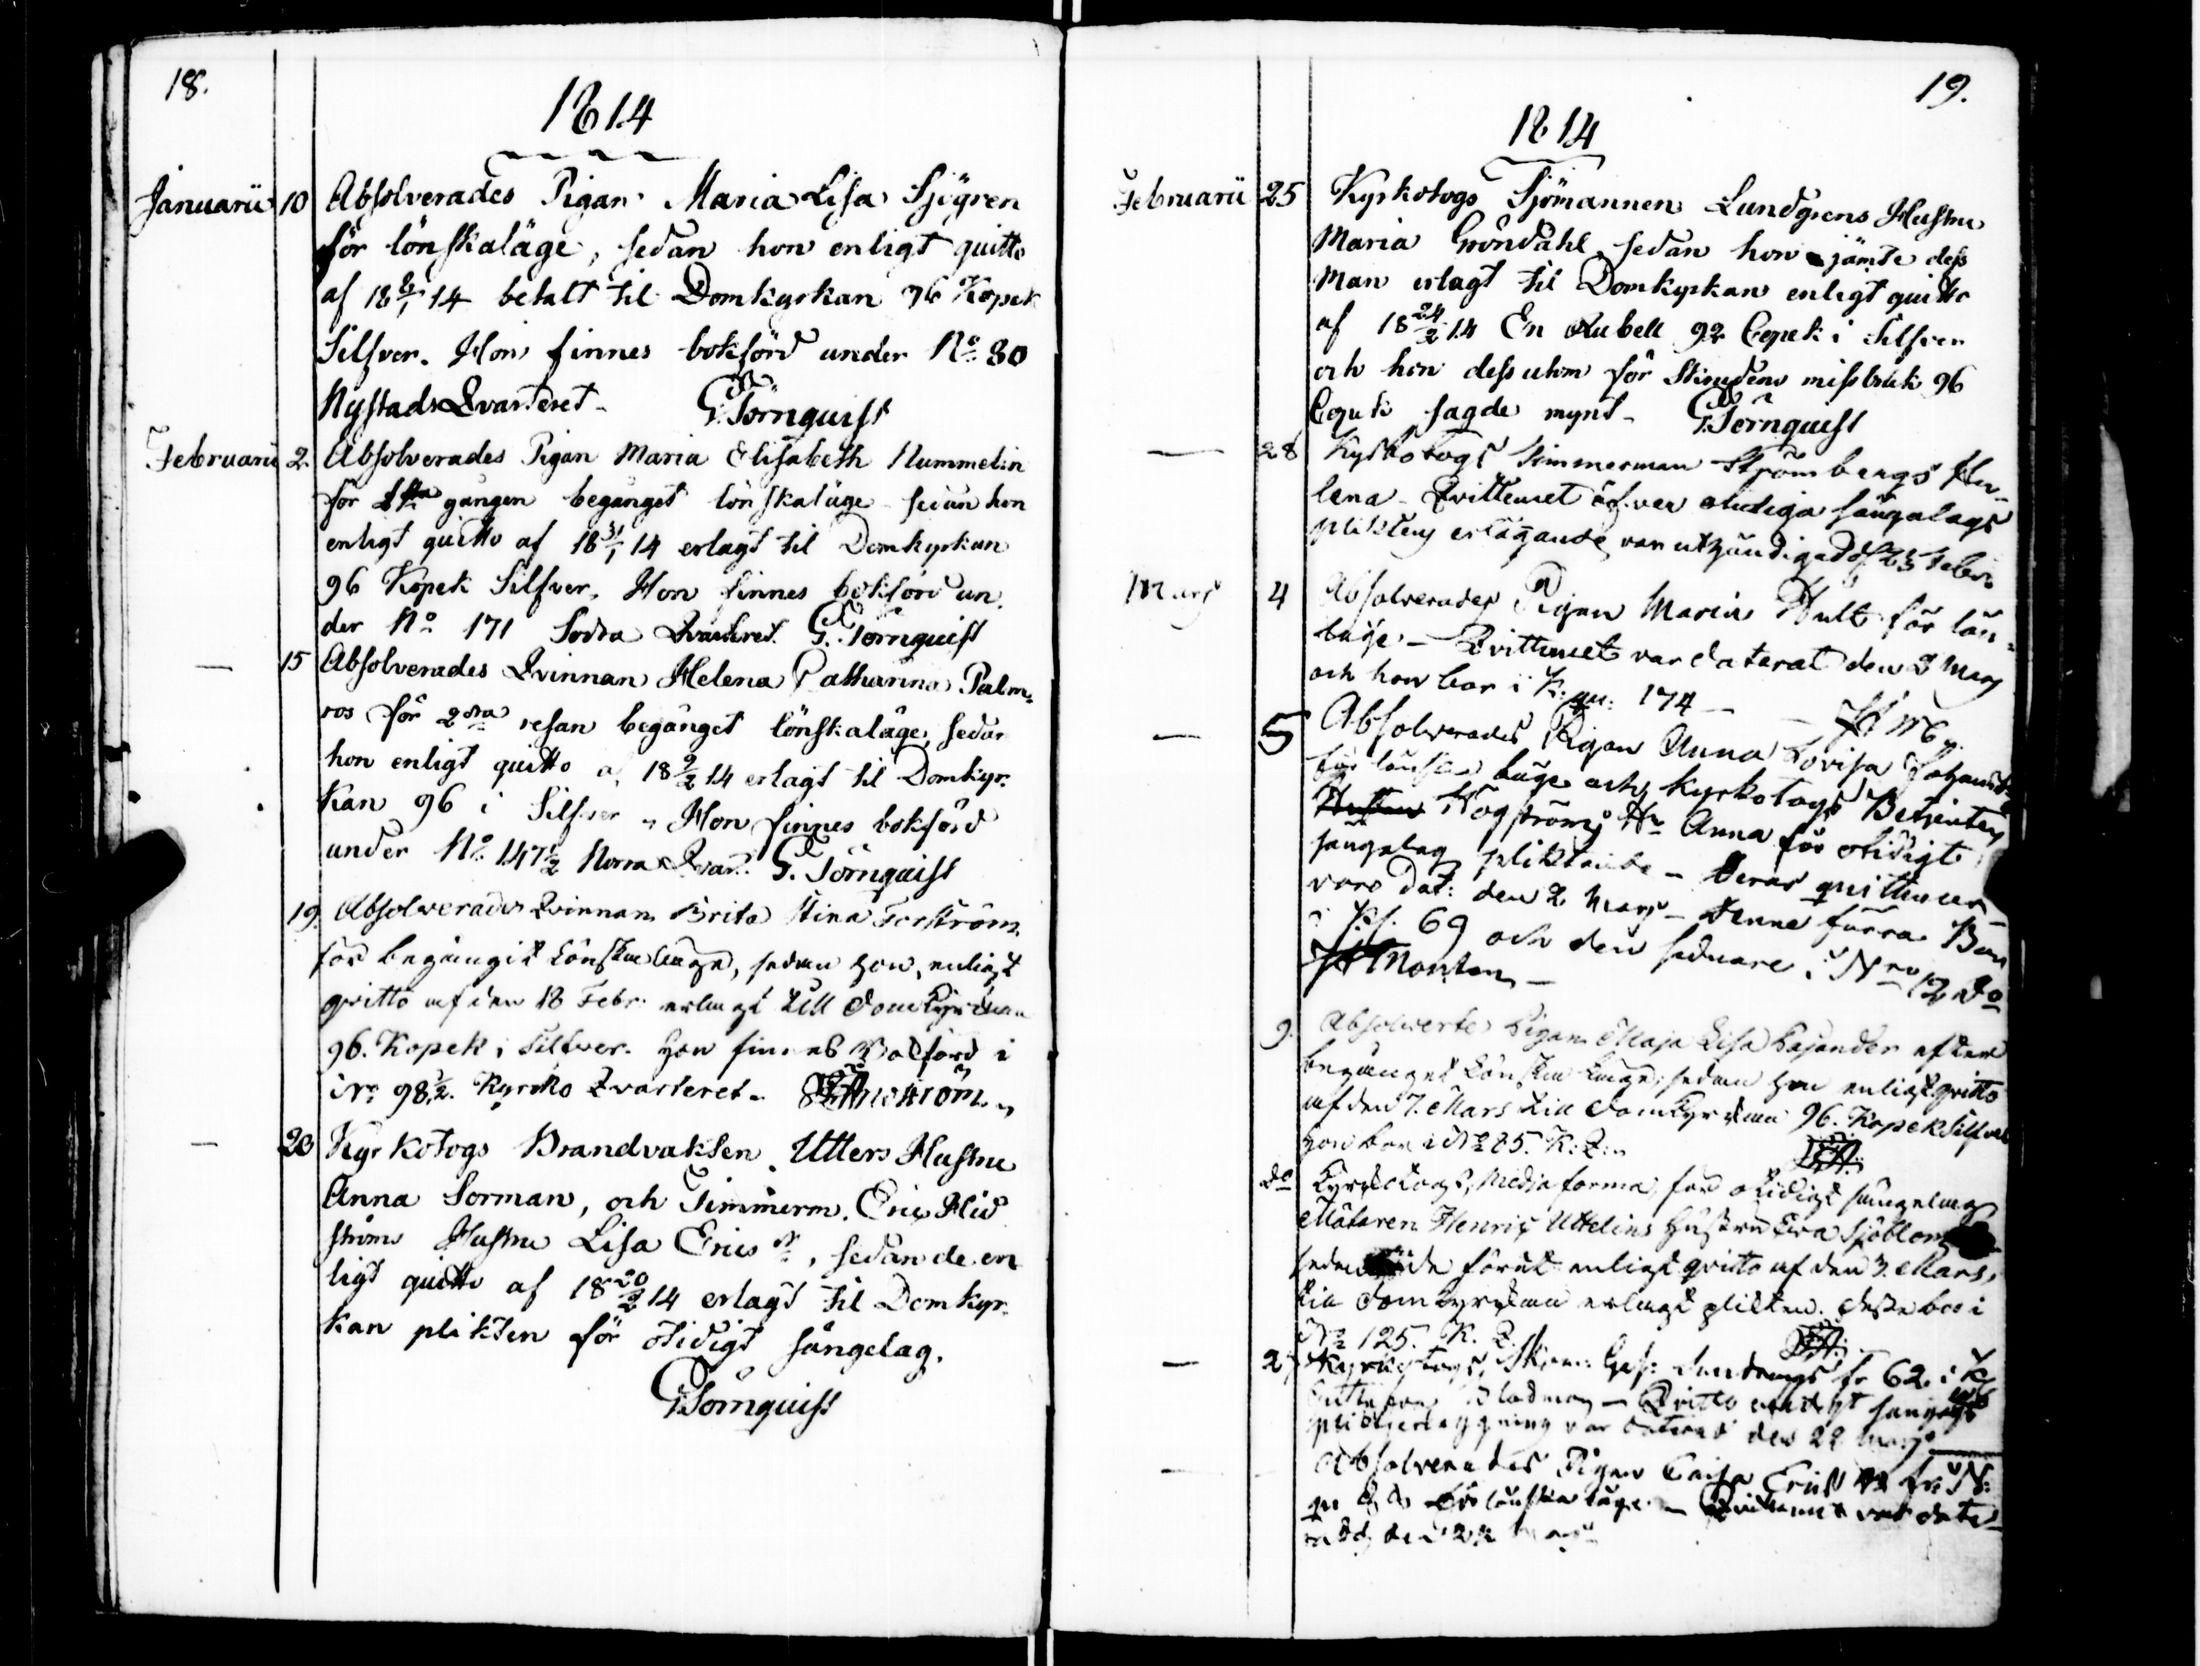 18.
1814
Januarii 10 Absolverades Pigan Maria Lisa Sjögren
för lönskaläge, sedan hon enligt quitto
af 18 8/1 14 betalt til Domkyrkan 96 Kopek
Silfver. Hon finnes bokförd under No 80
Nystads Qvarteret. G. Törnquist
Februarii 2. Absolverades Pigan Maria Elisabeth Nummelin
för gången begånget lönskaläge sedan hon
enligt quitto af 18 31/1 14 erlagt til Domkyrkan
96 Kopek Silfver. Hon finnes bokförd un
der No 171 Södra Qvarteret. G. Törnquist
— 15 Absolverades Qvinnan Helena Catharina Palm
ros för 2dra resan begånget lönskaläge, sedan
hon enligt quitto af 18 9/2 14 erlagt til Domkyr
kan 96 i Silfver. Hon finnes bokförd
under No. 147½ Norra Qvar. G. Törnquist
19. Absolverades Qvinnan Brita Stina Forström
för begångit Lönskaläge, sedan hon, enligt
qvitto af den 18 Febr. erlagt till Domkyrkan
96. Kopek i Silfver. Hon finnes Bokförd i
No 98½. Kyrko Qvarteret.
— 20 Kyrkotogs Brandvakten Utters Hustru
Anna Sorman, och Timmerm. Eric Hid
ströms Hustru Lisa Ericsdr, sedan de en
ligt quitto af 18 20/2 14 erlagt til Domkyr
kan plikten för otidigt sängelag.
G. Törnquist
19.
1814
Februarii 25 Kyrkotogs Sjömannen Lundgrens Hustru
Maria Gröndahl, sedan hon jämte dess
Man erlagt til Domkyrkan enligt quitto
af 18 24/2 14 En Rubell 92 Copek i Silfver
och hon dessutom för Skrudens missbruk 96
Copek sagde mynt. G. Törnquist
— 28 Kyrkotogs Timmerman Strömbergs He
lena. Qvittencet öfver otidiga sängalags
pliktens erläggande var utgifvadt d. 25 Febr.
Mars 4 Absolverades Pigan Maria Hult för lön
läge. — Qvittencet var daterat den 3 Mars
och hon bor i K. qu: 174 —
— 5 Absolverades Pigan Anna Lovisa Johansdr
för lönska läge och Kyrkotogs Betjenten
Högströms Hu Anna för otidigt
sängalag pliktande — Deras quittencer
voro Dat: den 2 Mars — Denne förra Bor
i 69 och den sednare i No 12 do
9. Absolverte Pigan Maja Lisa Cajander efter
begånget Lönska Läge, sedan hon enligt qvitto
af den 7. Mars till Domkyrkan 96. Kopek Silfver
hon bor i No 85. K: Q:
do Kyrkotogs, Medja forma, för otidigt sängelag
Mätaren Henric Uttelins Hustru Eva Sjöblom
sedan de förut enligt qvitto af den 3. Mars,
till Domkyrkan erlagt plikten. Desse bo i
No 125. K. Q.
— 27 Kyrkotogs, 62. i K
— Qvitto
var daterat den 22 Mars
— Absolverades Pigan Caisa Ericsdr
för lönska läge — Qvittencet var date